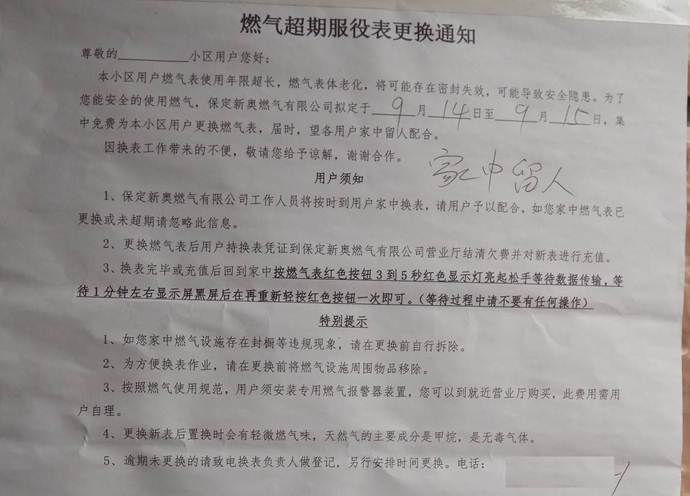 燃气超期服役表更换通知
尊敬的__________小区用户您好：
本小区用户燃气表使用年限超长，燃气表体老化，将可能存在密封失效，可能导致安全隐患。为了
您能安全的使用燃气，保定新奥燃气有限公司拟定于 9 月 14 日至 9 月 15 日，集
中免费为本小区用户更换燃气表，届时，望各用户家中留人配合。
因换表工作带来的不便，敬请您给予谅解，谢谢合作。
家中留人
用户须知
1、保定新奥燃气有限公司工作人员将按时到用户家中换表，请用户予以配合，如您家中燃气表已
更换或未超期请忽略此信息。
2、更换燃气表后用户持换表凭证到保定新奥燃气有限公司营业厅结清欠费并对新表进行充值。
3、换表完毕或充值后回到家中按燃气表红色按钮 3 到 5 秒红色显示灯亮起松手等待数据传输，等
待 1 分钟左右显示屏黑屏后在再重新轻按红色按钮一次即可。（等待过程中请不要有任何操作）
特别提示
1、如您家中燃气设施存在封橱等违规现象，请在更换前自行拆除。
2、为方便换表作业，请在更换前将燃气设施周围物品移除。
3、按照燃气使用规范，用户须安装专用燃气报警器装置，您可以到就近营业厅购买，此费用需用
户自理。
4、更换新表后置换时会有轻微燃气味，天然气的主要成分是甲烷，是无毒气体。
5、逾期未更换的请致电换表负责人做登记，另行安排时间更换。电话：